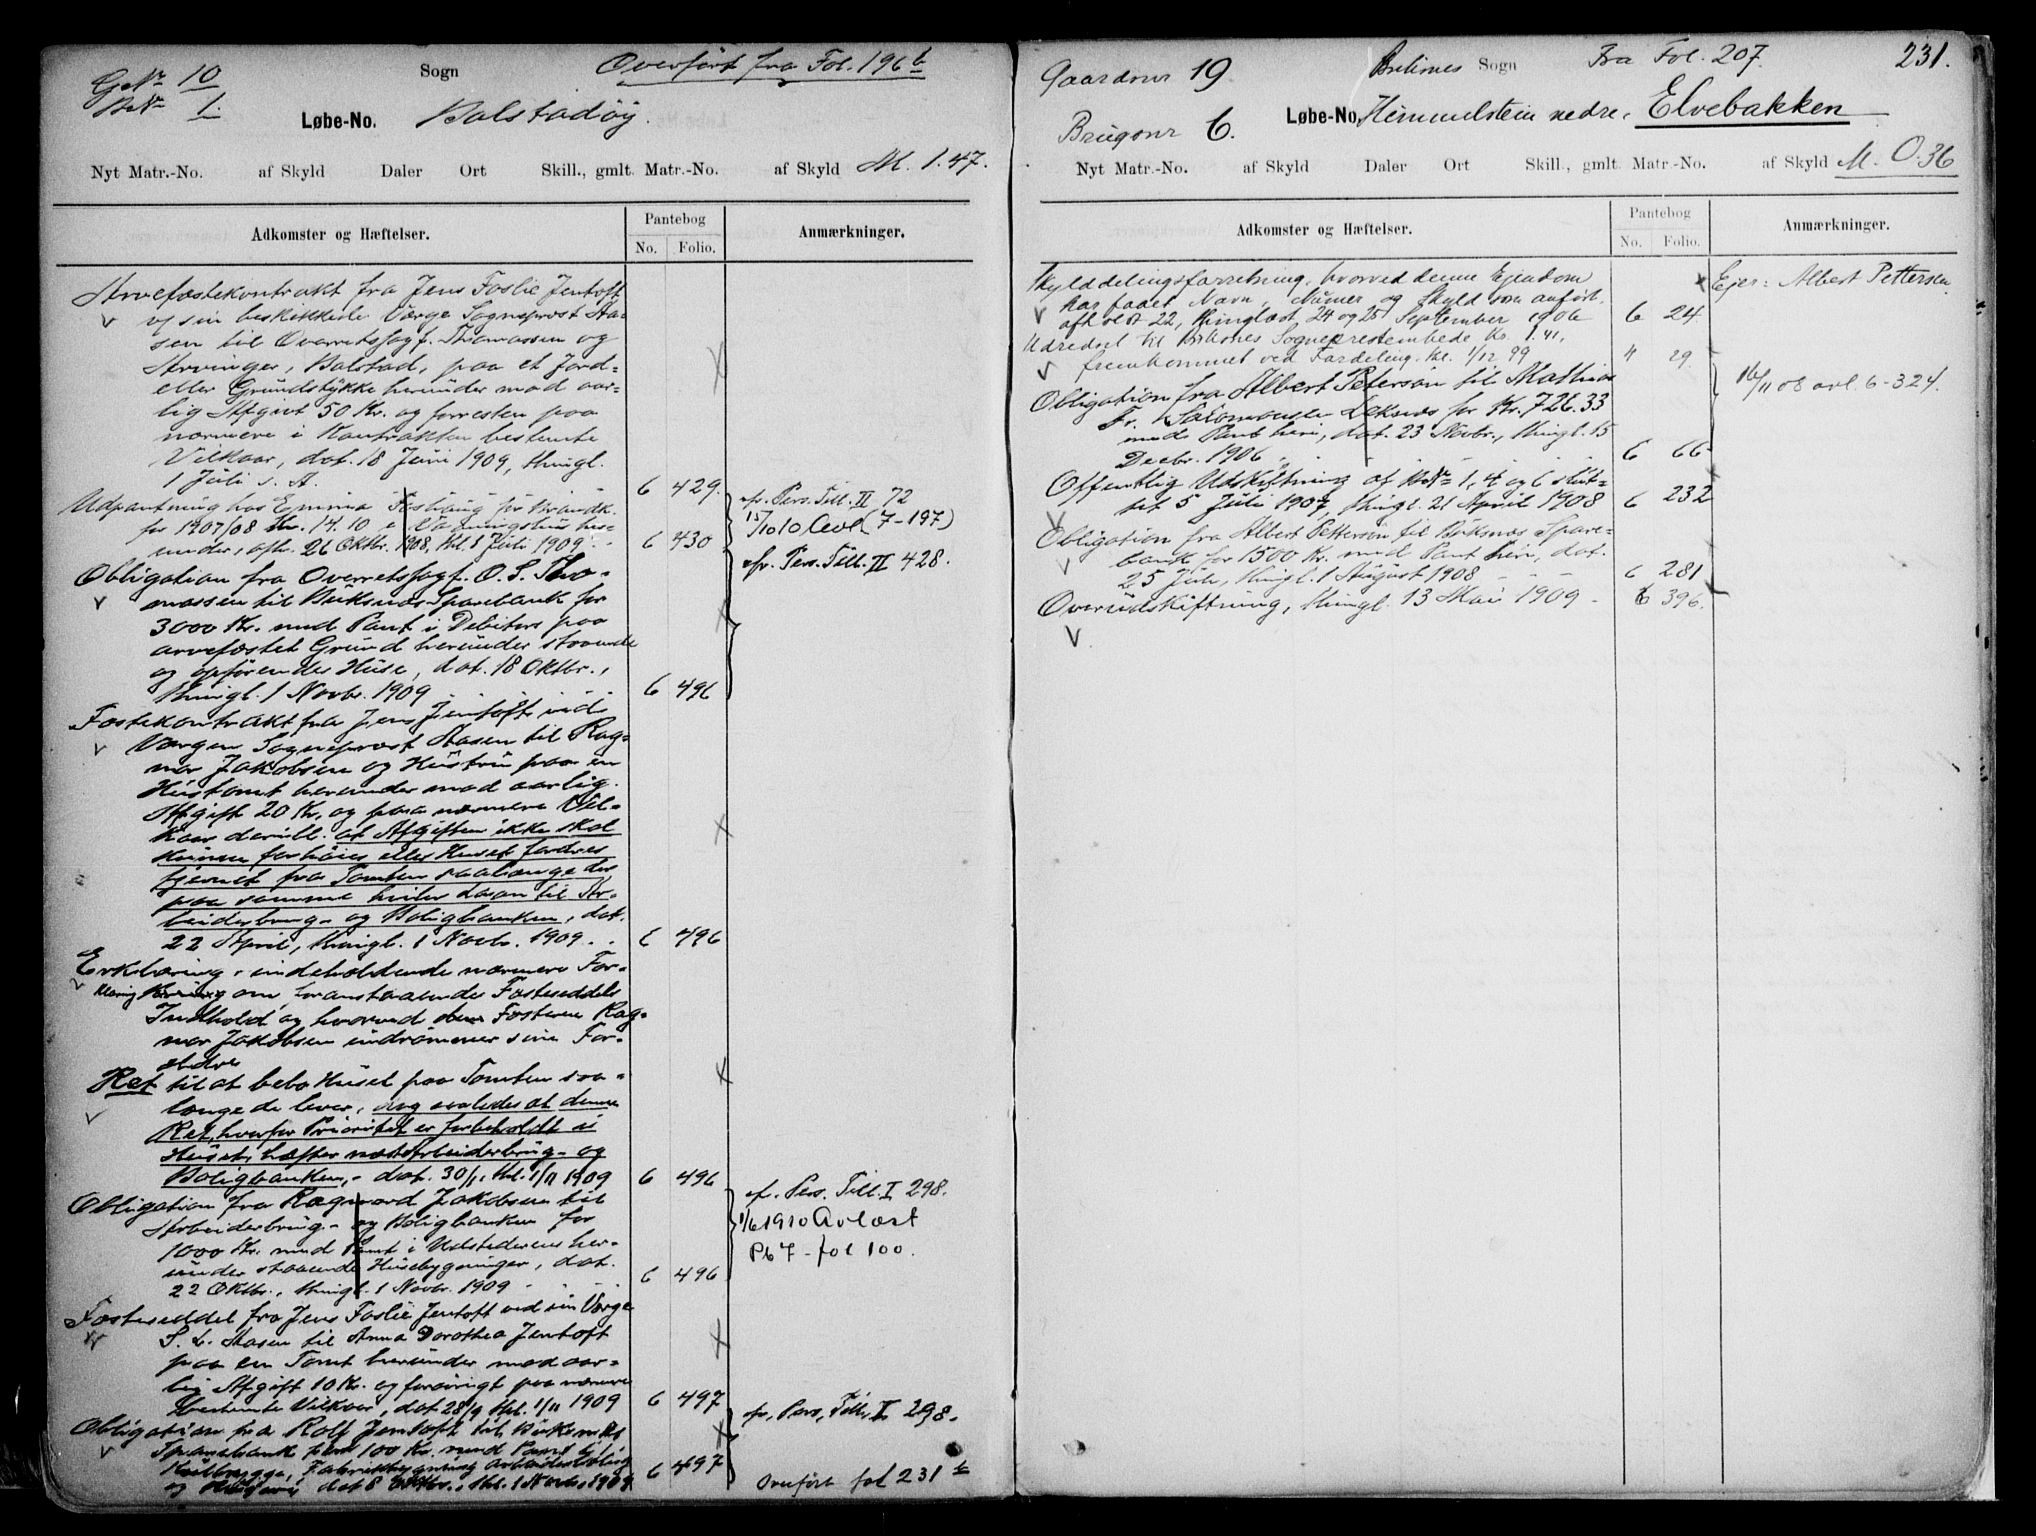 GNr 10
BNr 1.
Sogn
Overført fra Fol. 196 b
Løbe-No. Balstadøy.
Nyt Matr.-No. af Skyld Daler Ort Skill., gmlt. Matr.-No. af Skyld M. 1.47.
Adkomster og Hæftelser.
Pantebog
No. Folio.
Anmærkninger.
Arvefæstekontrakt fra Jens Foslie Jentoft
v/ sin beskikkede Værge Sogneprost Aa-
sen til Overretssagf. Thomassen og
Arvinger, Balstad, paa et Jord-
eller Grundstykke herunder mod aar-
lig Afgivt 50 Kr. og forresten paa
nærmere i Kontrakten bestemte
Vilkaar, dat. 18 Juni 1909, thingl.
1 Juli s. A. 6 429.
Udpantning hos Emma for Brandk.
for 1907/08 Kr. 14.10 i her-
under, afh. 26 Oktbr. 1908, thl. 1 Juli 1909. 6 430
cfr. Pers. Till. II 72
15/10 10 (7-197)
Obligation fra Overretssagf. O. S. Tho-
massen til Buksnæs Sparebank for
3000 Kr. med Pant i Debitors paa
arvefæstet Grund herunder staaende
og opførendes Huse, dat. 18 Oktbr.,
thingl. 1 Novbr. 1909 6 496
cfr. Pers. Till. II 428.
Fæstekontrakt fra Jens Jentoft ved
Værgen Sogneprost Aasen til Rag-
nar Jakobsen og Hustru paa en
Hustomt herunder mod aarlig
Afgift 20 Kr. og paa nærmere Vil-
kaar derunder at Afgiften ikke skal
kunne forhøies eller Huset fordres
fjernet fra Tomten saalænge der
paa samme hviler Laan til Ar-
beiderbrug- og Boligbanken, dat.
22 April, thingl. 1 Novbr. 1909. 6 496
Erklæring, indeholdende nærmere For-
klaring om foranstaaende Fæsteseddels
Indhold og hvorved Fæsteren Rag-
nar Jakobsen indrømmer sine For-
ældre
Ret til at bebo Huset paa Tomten saa-
længe de lever, dog saaledes at denne
Ret, hvorfor Prioritet er forbeholdt i
Huset, hæfter næst Arbeiderbrug- og
Boligbanken,- dat. 30/, thl. 1/11 1909 6 496
Obligation fra Ragnvard Jakobsen til
Arbeiderbrug- og Boligbanken for
1000 Kr. med Pant i Udstederens her-
under staaende Husebygninger, dat.
22 Oktbr., thingl. 1 Novbr. 1909 6 496
cf. Pers. Till. I 298.
1/6 1910 Avlæst
Pb 7 - fol 100.
Fæsteseddel fra Jens Foslie Jentoft ved sin Værge
S. L. Aasen til Anna Dorothea Jentoft
paa en Tomt herunder mod aar-
lig Afgift 10 Kr. og forøvrigt paa nærmere
bestemte Vilkaar, dat 28/9 thl. 1/11 1909 6 497
Obligation fra Rolf Jentoft til Buksnæs
Sparebank for 100 Kr. med Pant i
Fabrikbygning
og dat 8 Oktbr., thl. 1 Novb. 1909 6 497
cfr. Pers. Till. I 298.
Overført fol 231 b
Gaardsnr 19
Brugsnr 6.
Buksnes Sogn
Fra Fol. 207.
231.
Løbe-No. Himmelstein nedre. Elvebakken
Nyt Matr.-No. af Skyld Daler Ort Skill., gmlt. Matr.-No. af Skyld M. 0.36
Adkomster og Hæftelser.
Pantebog
No. Folio.
Anmærkninger.
Skylddelingsforretning, hvorved denne Ejendom
har faaet Navn, Numer og Skyld som anført.
afholdt 22, thinglæst 24 og 25 September 1906 6 24.
Ejer: Albert Pettersen.
Udredsel til Buksnes Sogneprestembede Kr. 1.41,
fremkommet ved Fordeling. thl. 1/12 99 " 29.
Obligation fra Albert Petersen til Mathias
Fr. Salomonsen Leknæs for Kr. 726.33
med Pant heri, dat. 23 Novbr., thingl. 15
Decbr. 1906 6 66
16/11 08 avl. 6-324.
Offentlig Udskiftning af BNr 1, 4 og 6 slut-
tet 5 Juli 1907, thingl. 21 April 1908 6 232
Obligation fra Albert Pettersen til Buksnæs Spare-
bank for 1500 Kr. med Pant heri, dat.
25 Juli, thingl. 1 August 1908 6 281
Overudskiftning, thingl. 13 Mai 1909 6 396.